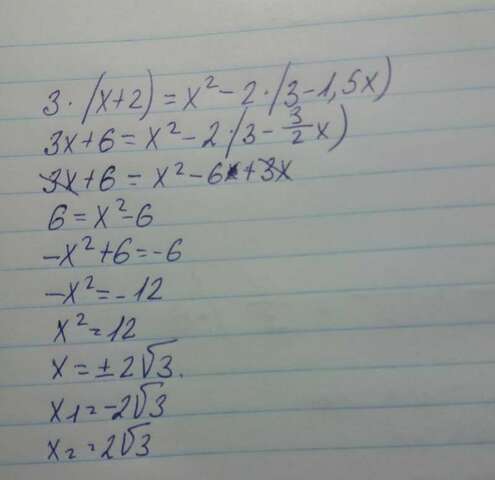 3 · (x+2) = x² - 2 · (3 - 1,5x)
3x + 6 = x² - 2 · (3 - 3/2 x)
3x + 6 = x² - 6 + 3x
6 = x² - 6
-x² + 6 = -6
-x² = -12
x² = 12
x = ± 2√3.
x1 = -2√3
x2 = 2√3